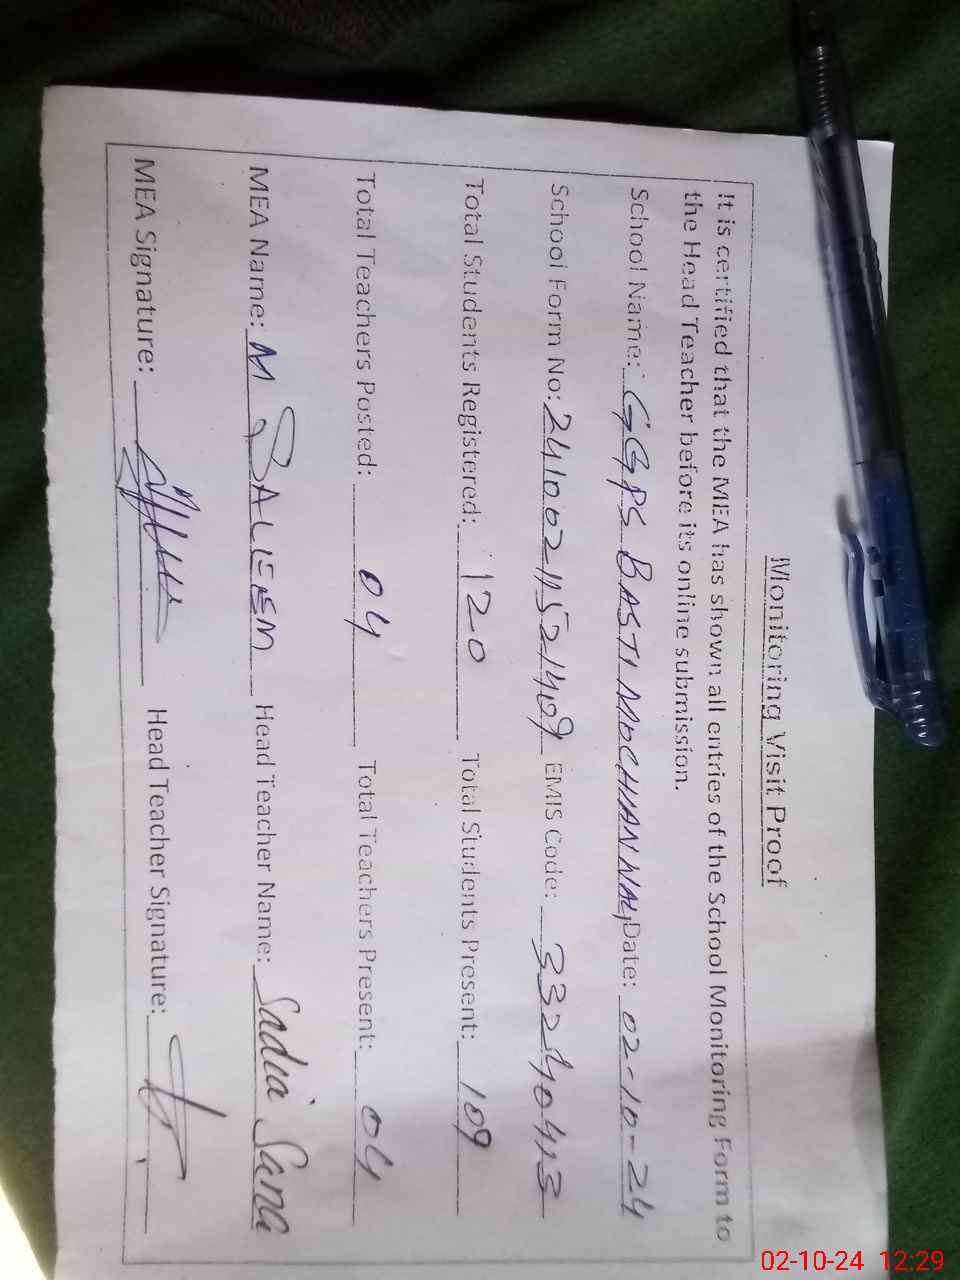 Monitoring Visit Proof
It is certified that the MEA has shown all entries of the School Monitoring Form to
the Head Teacher before its online submission.
School Name: GGPS BASTI MOCHIAN WALI Date: 02-10-24
School Form No: 2410021152409 EMIS Code: 33240413
Total Students Registered: 120 Total Students Present: 109
Total Teachers Posted: 04 Total Teachers Present: 04
MEA Name: M SALEEM Head Teacher Name: Sadia Sana
MEA Signature: Head Teacher Signature:
02-10-24 12:29